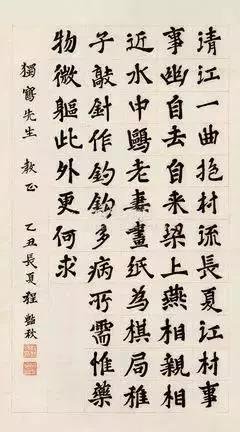 清江一曲抱村流長夏江村事
事幽自去自来梁上燕相親相
近水中鷗老妻畫紙為棋局稚
子敲針作釣鈎多病所需惟藥
物微軀此外更何求
獨鶴先生 教正 乙丑長夏程豔秋